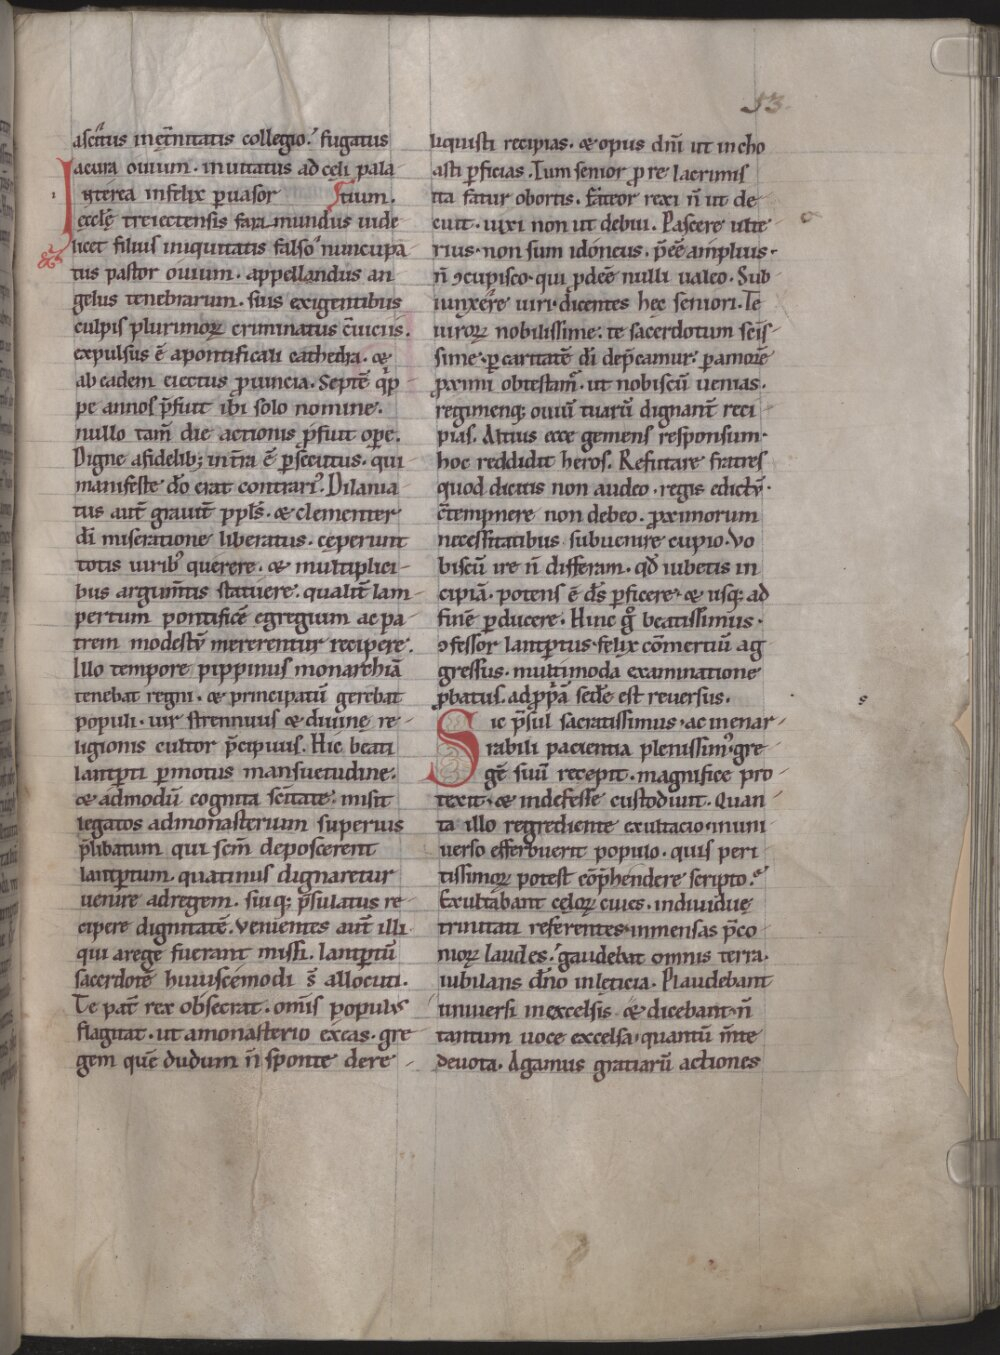 53.
ascit᷒tus in et̄nitatis collegio. fugatus
a cura ouium. inuitatus ad celi pala
Iñterea infelix puasor tium.
ecclę treiectensis faramundus uide
licet filius iniquitatis falso nuncupa-
tus pastor ouium. appellandus an
gelus tenebrarum. suis exigentibus
culpis plurimoꝝ criminatus c̄uiciis.
expulsus ē a pontificali cathedra. &
ab eadem eiectus ꝓuincia. Septē q̄p
pe annos p̄fuit ibi solo nomine.
nullo tam̄ die actionis p̄fuit oꝑe.
Digne a fidelib; int̄ra ē ꝑsecutus. qui
manifeste dō erat contrari᷒. Dilania-
tus aut̄ grauit̄ ppl̄s. & clementer
dī miseratione liberatus. cęperunt
totis uirib᷒ querere. & multiplici-
bus argum̄tis statuere. qualit̄ lam-
pertum pontificē egregium ac pa-
trem modestū mererentur recipere.
Illo tempore pippinus monarchiā
tenebat regni. & principatū gerebat
populi. uir strennuus & diuinę re-
ligionis cultor p̄cipuus. Hic beati
lantꝑti ꝑmotus mansuetudine.
& admodū cognita sc̄itate. misit
legatos ad monasterium superius
p̄libatum qui scm̄ deposcerent
lantꝑtum. quatinus dignaretur
uenire ad regem. suiq; p̄sulatus re-
cipere dignitatē. Venientes aut̄ illi
qui a rege fuerant missi. lantꝑtū
sacerdotē huiuscemodi s̄ allocuti.
Te pat̄ rex obsecrat. om̄is populus
flagitat. ut a monasterio exeas. gre-
gem quē dudum n̄ sponte dere-
liquisti recipias. & opus dn̄i ut incho
asti ꝑficias. Tum senior p̄ re lacrimis
ita fatur obortis. Fateor rexi n̄ ut de-
cuit. uixi non ut debui. Pascere ulte-
rius non sum idoneus. p̄cē amplius-
n̄ ꝯcupisco. qui ꝓdee nulli ualeo. Sub-
iunxere uiri dicentes hec seniori. Te
uiroꝝ nobilissime. te sacerdotum scis-
sime. ꝑ caritatē dī dep̄camur. ꝑ amorē
ꝓximi obtestam̄. ut nobiscū uenias.
regimenq; ouiū tuarū dignant̄ reci-
pias. Altius ecce gemens responsum
hoc reddidit heros. Refutare fratres
quod dicitis non audeo. regis edictū
c̄tempnere non debeo. ꝓximorum
necessitatibus subuenire cupio. Vo-
biscū ire n̄ differam. qd̄ iubetis in
cipiā. potens ē ds̄ ꝑficere. & usq; ad
finē ꝑducere. Huic g̊ beatissimus
ꝯfessor lantꝑtus. felix cōmertiū ag
gressus. multimoda examinatione
ꝓbatus. ad ꝓp̄ā sedē est reuersus.
Sic p̄sul sacratissimus. ac inenar-
rabili pacientia plenissim᷒ gre-
gē suū recepit. magnifice pro-
texit. & indefesse custodiuit. Quan
ta illo regrediente exultacio inuni
uerso efferbuerit populo. quis peri
tissimoꝝ potest cōp̄hendere scripto.
Exultabant cęloꝝ ciues. indiuiduę
trinitati referentes inmensas p̄co-
nioꝝ laudes. gaudebat omnis terra.
iubilans dn̄o in leticia. Plaudebant
uniuersi in excelsis & dicebant. n̄
tantum uoce excelsa. quantū m̄te
deuota. Agamus gratiarū actiones